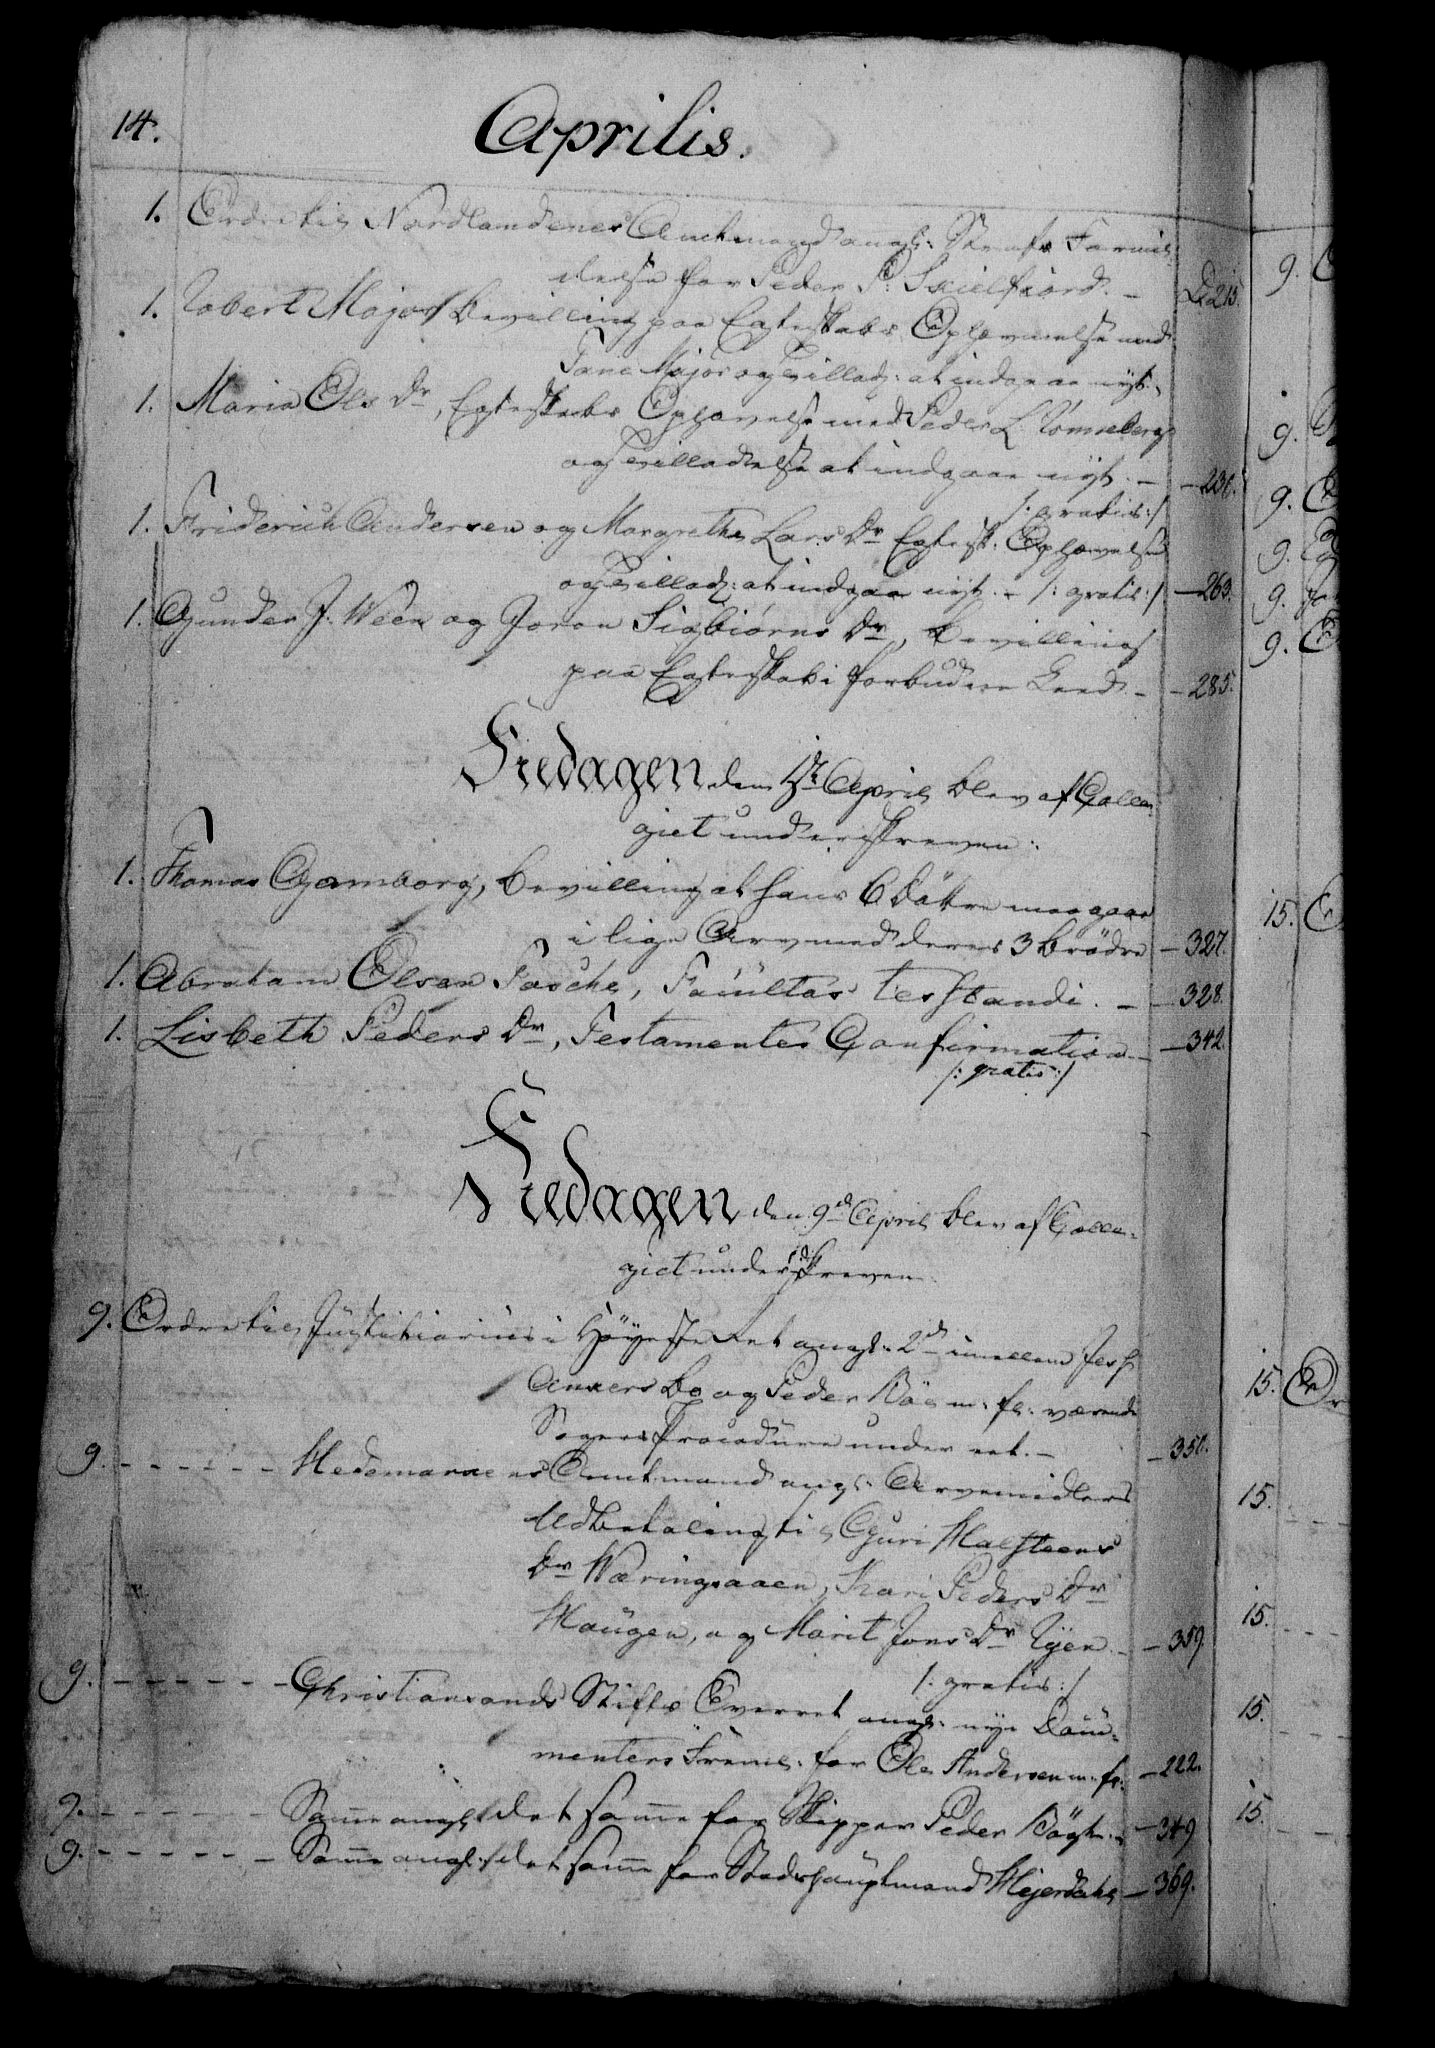 14.
Aprilis.
1. Ordre til Nordlandenes Amtmand angl: Strafs Formil-
delse for Peder P: Skielfiord. - D. 215.
1. Robert Major Bevilling paa Egteskabs Ophævelse med
Jane Major og Tillad: at indgaae nyt.
1. Maria Ols Dr, Egteskabs Ophævelse med Peder L. Tømseberg
og Tilladelse at indgaae nyt. - - 230.
/: gratis :/
1. Friderich Andersen og Margrethe Lars Dr Egtesk: Ophævelse
og Tillad: at indgaa nyt. - /: gratis :/ - 263.
1. Gunder J. Ween og Joran Sigbiørns Dr, Bevilling
paa Egteskab i forbudne Leed - - 285.
Fredagen den April blev af Colle-
giet underskreven:
1. Thomas Gamborg, Bevilling at hans 6 Døttre maa gaae
i lige Arv med deres 3 Brødre - 327.
1. Abraham Olsen Pasche, Facultas testandi. - - 328.
1. Lisbeth Peders Dr, Testamentes Confirmation - - 342.
/: gratis :/
Fredagen den 9de April blev af Colle-
giet underskreven
9. Ordre til Justitiarius i Høyeste Ret angl: 2de imellem Jess
Ankers Bo og Peder Bøe m: fl: værende
Sagers Procedure under eet. - - 350.
9. - - - - - - Hedemarkens Amtmand angl: Arvemidlers
Udbetaling til Guri Halsteens
Dr Næringsaaen, Kari Peders Dr
Haugen, og Marit Jons Dr Tÿen. - - 359.
/: gratis :/
9. - - - - - - Christiansands Stifts Overret angl: nye Docu-
menters Freml: for Ole Andersen m: fl: - 222.
9. - - - - - - Samme angl: det samme for Skipper Peder Bøgh. - 349
9. - - - - - - Samme angl: det samme for Stadshauptmand Hejerdahl - 369.
9.
9.
9.
9.
9.
9.
15.
15. Or
15.
15.
15.
15.